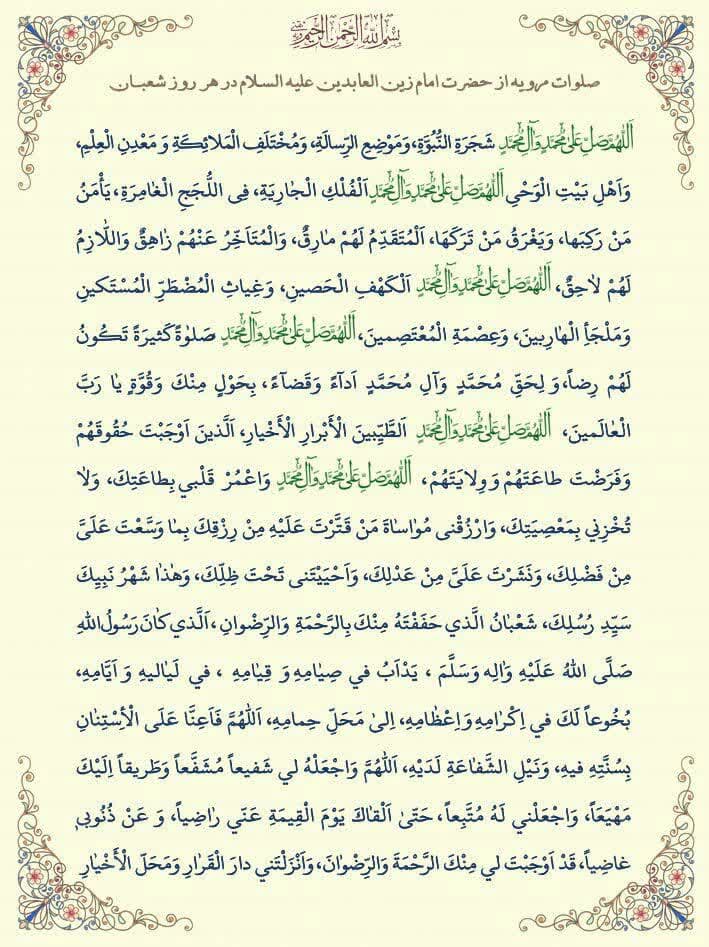 بِسْمِ اللهِ الرَّحْمٰنِ الرَّحيٖمِ
صلوات مرویه از حضرت امام زین العابدین علیه السلام در هر روز شعبان
اَللّٰهُمَّ صَلِّ عَلیٰ مُحَمَّدٍ وَ آلِ مُحَمَّدٍ شَجَرَةِ النُّبُوَّةِ، وَمَوْضِعِ الرِّسالَةِ، وَمُخْتَلَفِ الْمَلائِكَةِ وَ مَعْدِنِ الْعِلْمِ،
وَ اَهْلِ بَيْتِ الْوَحْىِ اَللّٰهُمَّ صَلِّ عَلیٰ مُحَمَّدٍ وَ آلِ مُحَمَّدٍ اَلْفُلْكِ الْجٰارِيَةِ، فِى اللُّجَجِ الْغامِرَةِ، يَأْمَنُ
مَنْ رَكِبَها، وَيَغْرَقُ مَنْ تَرَكَهَا، اَلْمُتَقَدِّمُ لَهُمْ مٰارِقٌ، وَالْمُتَاَخِّرُ عَنْهُمْ زٰاهِقٌ وَاللّٰازِمُ
لَهُمْ لاٰحِقٌ، اَللّٰهُمَّ صَلِّ عَلیٰ مُحَمَّدٍ وَ آلِ مُحَمَّدٍ اَلْكَهْفِ الْحَصينِ، وَغِياثِ الْمُضْطَرِّ الْمُسْتَكينِ
وَ مَلْجَأِ الْهٰارِبينَ، وَعِصْمَةِ الْمُعْتَصِمينَ، اَللّٰهُمَّ صَلِّ عَلیٰ مُحَمَّدٍ وَ آلِ مُحَمَّدٍ صَلوٰةً كَثيرَةً تَكُونُ
لَهُمْ رِضاً، وَ لِحَقِّ مُحَمَّدٍ وَآلِ مُحَمَّدٍ اَدآءً وَقَضآءً، بِحَوْلٍ مِنْكَ وَقُوَّةٍ يٰا رَبَّ
الْعٰالَمينَ، اَللّٰهُمَّ صَلِّ عَلیٰ مُحَمَّدٍ وَ آلِ مُحَمَّدٍ اَلطَّيِّبينَ الْأَبْرارِ الْأَخْيارِ، اَلَّذينَ اَوْجَبْتَ حُقُوقَهُمْ
وَ فَرَضْتَ طاعَتَهُمْ وَ وِلايَتَهُمْ، اَللّٰهُمَّ صَلِّ عَلیٰ مُحَمَّدٍ وَ آلِ مُحَمَّدٍ وَاعْمُرْ قَلْبي بِطاعَتِكَ، وَلاٰ
تُخْزِني بِمَعْصِيَتِكَ، وَارْزُقْنى مُوٰاسٰاةَ مَنْ قَتَّرْتَ عَلَيْهِ مِنْ رِزْقِكَ بِمٰا وَسَّعْتَ عَلَىَّ
مِنْ فَضْلِكَ، وَنَشَرْتَ عَلَىَّ مِنْ عَدْلِكَ، وَاَحْيَيْتَنى تَحْتَ ظِلِّكَ، وَهٰذٰا شَهْرُ نَبِيِّكَ
سَيِّدِ رُسُلِكَ، شَعْبٰانُ الَّذي حَفَفْتَهُ مِنْكَ بِالرَّحْمَةِ وَالرِّضْوانِ، اَلَّذي كٰانَ رَسُولُ اللهِ
صَلَّى اللهُ عَلَيْهِ وَاٰلِه وَسَلَّمَ، يَدْاَبُ في صِيٰامِهِ وَ قِيٰامِهِ، في لَيٰاليهِ وَ اَيّٰامِهِ،
بُخُوعاً لَكَ في اِكْرٰامِهِ وَاِعْظٰامِهِ، اِلىٰ مَحَلِّ حِمامِهِ، اَللّٰهُمَّ فَاَعِنّٰا عَلَى الْاِسْتِنٰانِ
بِسُنَّتِهِ فيهِ، وَنَيْلِ الشَّفٰاعَةِ لَدَيْهِ، اَللّٰهُمَّ وَاجْعَلْهُ لي شَفيعاً مُشَفَّعاً وَطَريقاً اِلَيْكَ
مَهْيَعَاً، وَاجْعَلْني لَهُ مُتَّبِعاً، حَتّىٰ اَلْقٰاكَ يَوْمَ الْقِيمَةِ عَنّي رٰاضِياً، وَ عَنْ ذُنُوبيٖ
غاضِياً، قَدْ اَوْجَبْتَ لي مِنْكَ الرَّحْمَةَ وَالرِّضْوٰانَ، وَاَنْزَلْتَني دارَ الْقَرٰارِ وَمَحَلَّ الْأَخْيٰارِ